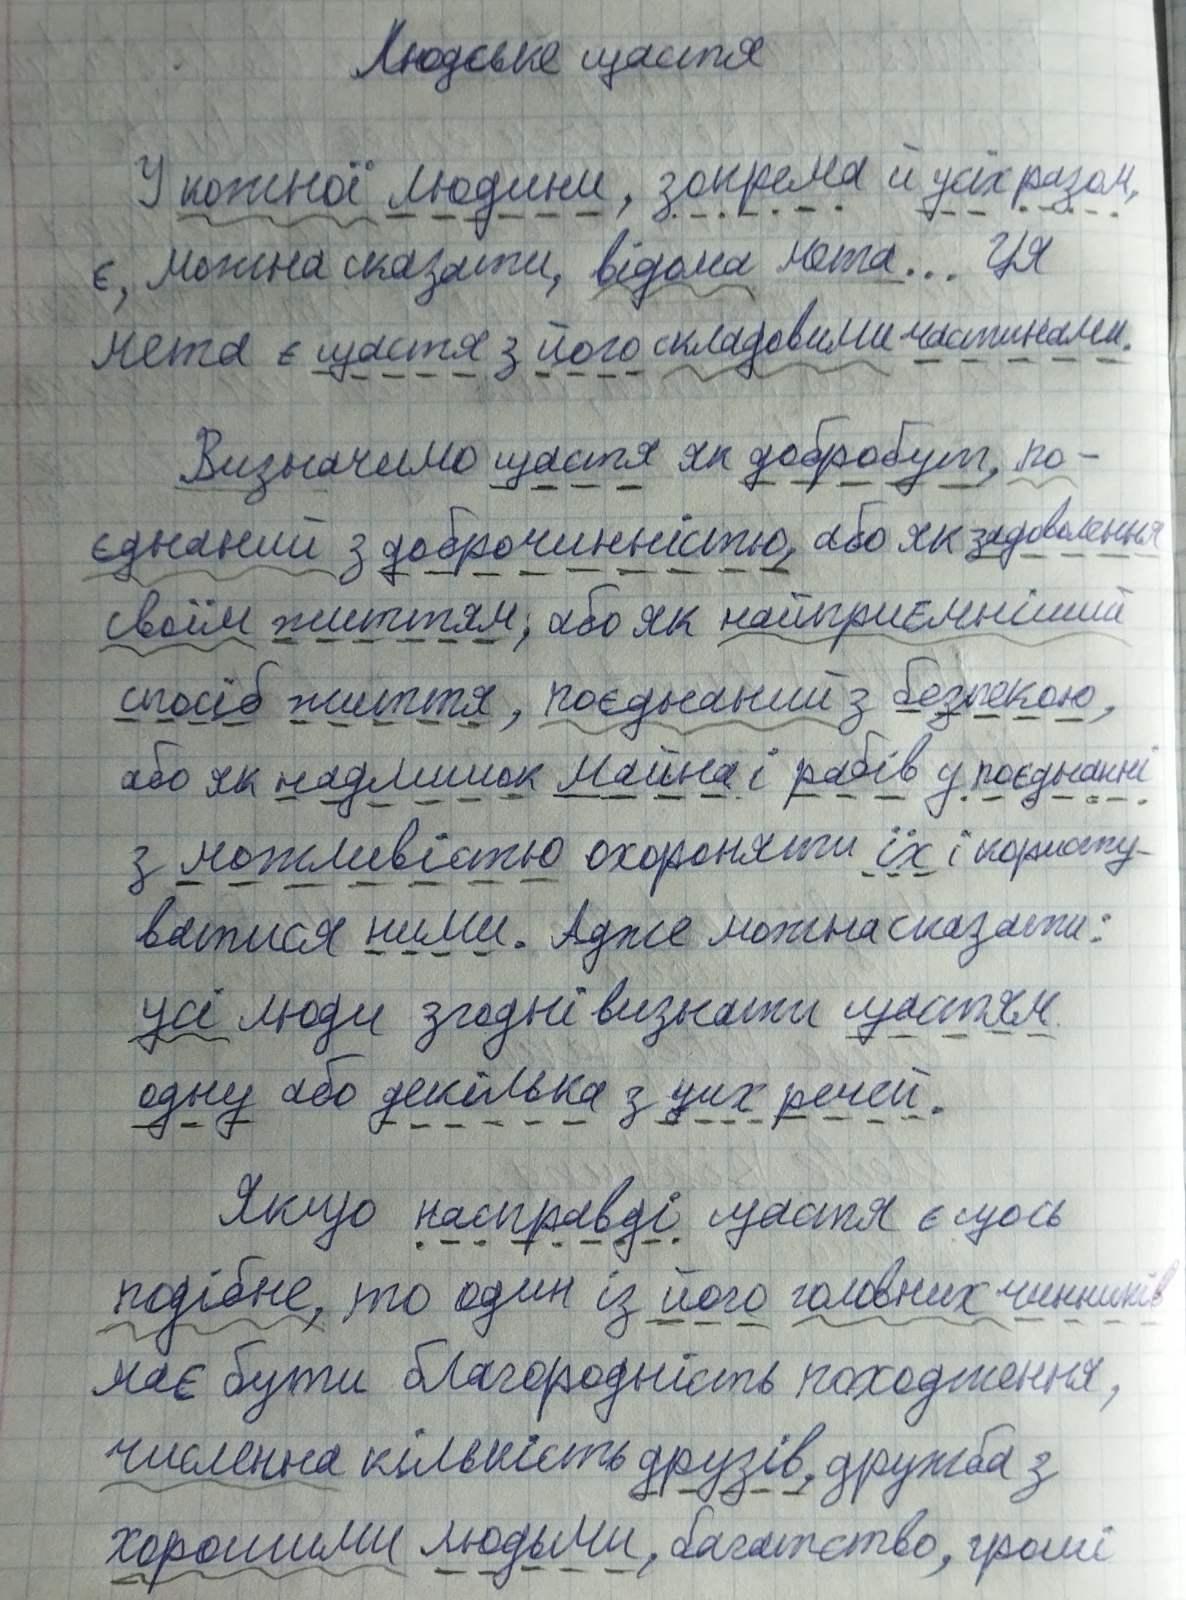 Людське щастя
У кожної людини, зокрема й усіх разом,
є, можна сказати, відома мета... Ця
мета є щастя з його складовими частинами.
Визначимо щастя як добробут, по-
єднаний з доброчинністю, або як задоволення
своїм життям, або як найприємніший
спосіб життя, поєднаний з безпекою,
або як надлишок майна і рабів у поєднанні
з можливістю охороняти їх і користу-
ватися ними. Адже можна сказати:
усі люди згодні визнати щастям
одну або декілька з цих речей.
Якщо насправді щастя є щось
подібне, то один із його головних чинників
має бути благородність походження,
численна кількість друзів, дружба з
хорошими людьми, багатство, гроші